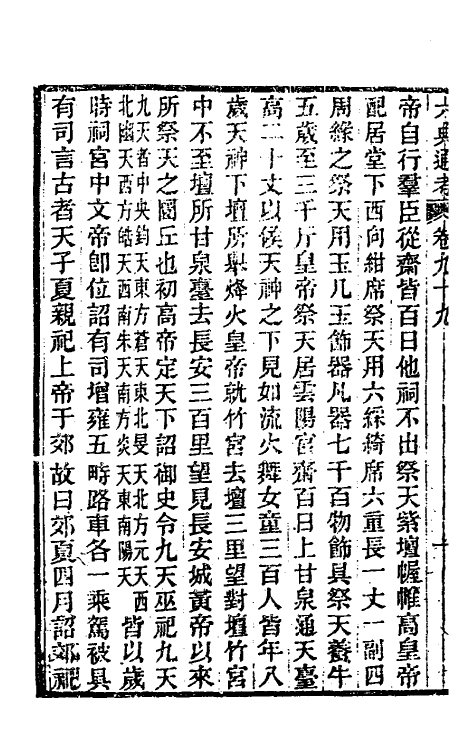 六典通考 卷九十九 十
帝自行羣臣從齋皆百日他祠不出祭天紫壇幄帷高皇帝
配居堂下西向紺席祭天用六綵綺席六重長一丈一副四
周緣之祭天用玉几玉飾器凡器七千百物飾具祭天養牛
五歲至三千斤皇帝祭天居雲陽宮齋百日上甘泉通天臺
高二十丈以候天神之下見如流火舞女童三百人皆年八
歲天神下壇所舉烽火皇帝就竹宮去壇三里望對壇竹宮
中不至壇所甘泉臺去長安三百里望見長安城黃帝以來
所祭天之圜丘也初高帝定天下詔御史令九天巫祀九天
九天者中央鈞天東方蒼天東北旻天北方元天西
北幽天西方皓天西南朱天南方炎天東南陽天
皆以歲
時祠宮中文帝卽位詔有司增雍五畤路車各一乘駕被具
有司言古者天子夏親祀上帝于郊故曰郊夏四月詔郊祀